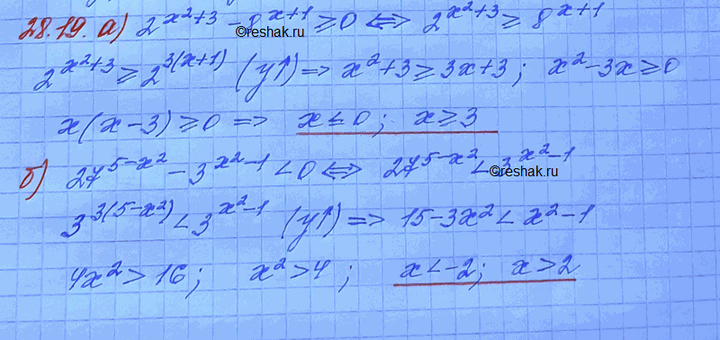 28.19. а) 2^{x²+3} - 8^{x+1} ≥ 0 ⟺ 2^{x²+3} ≥ 8^{x+1}
©reshak.ru
2^{x²+3} ≥ 2^{3(x+1)} (y↑) ⇒ x²+3 ≥ 3x+3; x²-3x ≥ 0
x(x-3) ≥ 0 ⇒ x ≤ 0; x ≥ 3
б) 27^{5-x²} - 3^{x²-1} < 0 ⟺ 27^{5-x²} < 3^{x²-1}
©reshak.ru
3^{3(5-x²)} < 3^{x²-1} (y↑) ⇒ 15-3x² < x²-1
4x² > 16; x² > 4; x < -2; x > 2